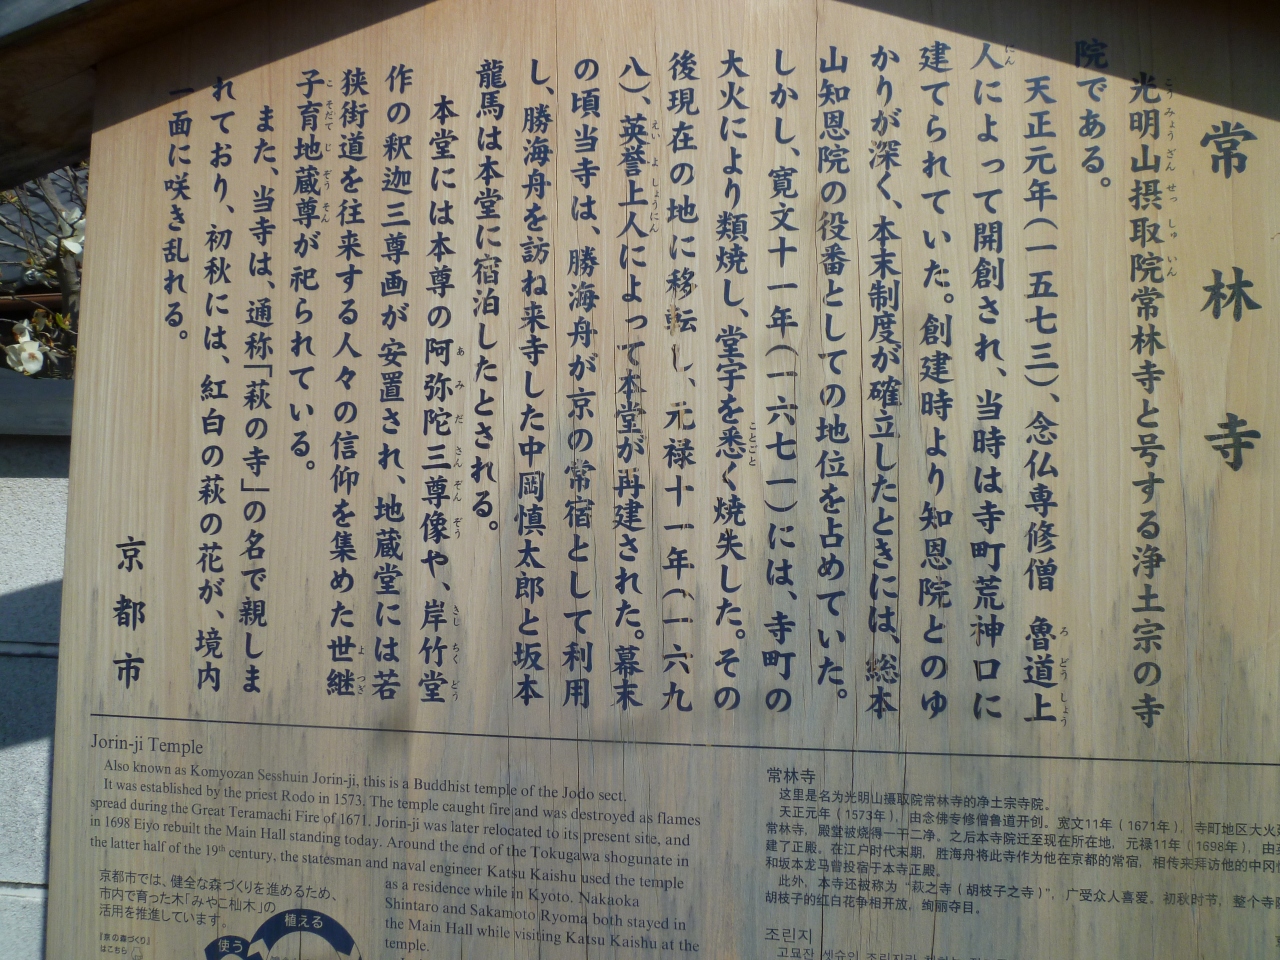 常林寺
光明山摂取院常林寺と号する浄土宗の寺
院である。
天正元年(一五七三)、念仏専修僧 魯道上
人によって開創され、当時は寺町荒神口に
建てられていた。創建時より知恩院とのゆ
かりが深く、本末制度が確立したときには、総本
山知恩院の役番としての地位を占めていた。
しかし、寛文十一年(一六七一)には、寺町の
大火により類焼し、堂宇を悉く焼失した。その
後現在の地に移転し、元禄十一年(一六九
八)、英誉上人によって本堂が再建された。幕末
の頃当寺は、勝海舟が京の常宿として利用
し、勝海舟を訪ね来寺した中岡慎太郎と坂本
龍馬は本堂に宿泊したとされる。
本堂には本尊の阿弥陀三尊像や、岸竹堂
作の釈迦三尊画が安置され、地蔵堂には若
狭街道を往来する人々の信仰を集めた世継
子育地蔵尊が祀られている。
また、当寺は、通称「萩の寺」の名で親しま
れており、初秋には、紅白の萩の花が、境内
一面に咲き乱れる。
京都市
Jorin-ji Temple
Also known as Komyozan Sesshuin Jorin-ji, this is a Buddhist temple of the Jodo sect.
It was established by the priest Rodo in 1573. The temple caught fire and was destroyed as flames
spread during the Great Teramachi Fire of 1671. Jorin-ji was later relocated to its present site, and
in 1698 Eiyo rebuilt the Main Hall standing today. Around the end of the Tokugawa shogunate in
the latter half of the 19th century, the statesman and naval engineer Katsu Kaishu used the temple
as a residence while in Kyoto. Nakaoka
Shintaro and Sakamoto Ryoma both stayed in
the Main Hall while visiting Katsu Kaishu at the
temple.
京都市では、健全な森づくりを進めるため、
市内で育った木「みやこ杣木」の
活用を推進しています。
『京の森づくり』
はこちら
植える
使う
常林寺
这里是名为光明山摄取院常林寺的净土宗寺院。
天正元年(1573年)，由念佛专修僧鲁道开创。宽文11年(1671年)，寺町地区大火
常林寺，殿堂被烧得一干二净。之后本寺院迁至现在所在地，元禄11年(1698年)，由
建了正殿。在江户时代末期，胜海舟将此寺作为他在京都的常宿，相传来拜访他的中冈
和坂本龙马曾投宿于本寺正殿。
此外，本寺还被称为“萩之寺(胡枝子之寺)”，广受众人喜爱。初秋时节，整个寺
胡枝子的红白花争相开放，绚丽夺目。
조린지